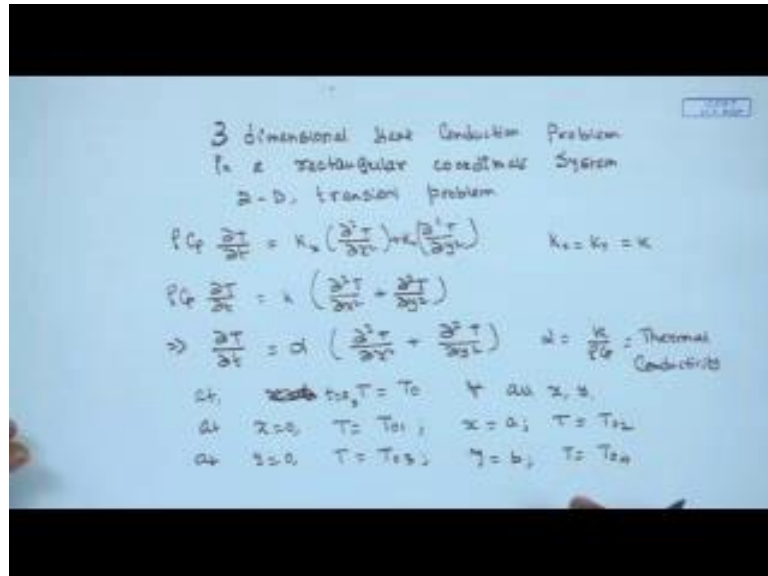 3 dimensional Heat Conduction Problem
In a rectangular coordinate System
2-D, transient problem
ρCp ∂T/∂t = Kx (∂²T/∂x²) + Ky (∂²T/∂y²) Kx = Ky = K
ρCp ∂T/∂t = K (∂²T/∂x² + ∂²T/∂y²)
⇒ ∂T/∂t = α (∂²T/∂x² + ∂²T/∂y²) α = K/ρCp = Thermal
Conductivity
at, t=0, T = T0 ∀ all x, y.
at x=0, T = T01; x = a; T = T02
at y=0, T = T03; y = b; T = T04